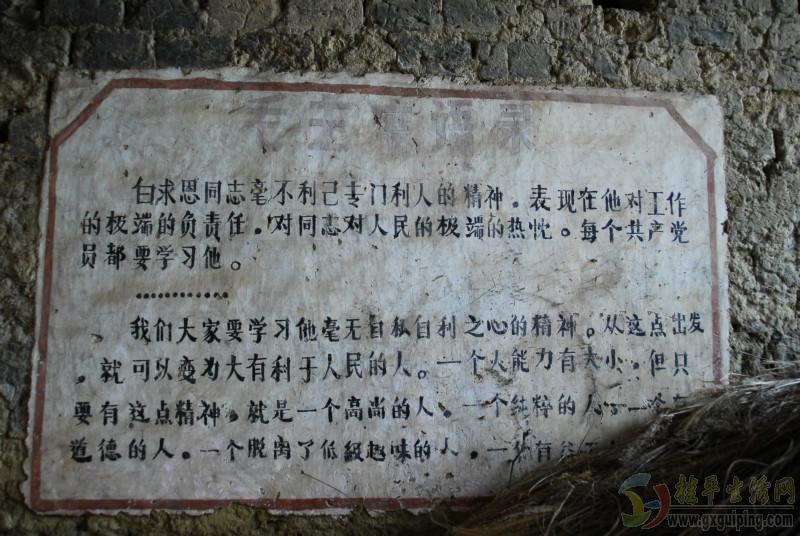 毛主席语录
白求恩同志毫不利己专门利人的精神。表现在他对工作
的极端的负责任。对同志对人民的极端的热忱。每个共产党
员都要学习他。
…………
我们大家要学习他毫无自私自利之心的精神。从这点出发
。就可以变为大有利于人民的人。一个人能力有大小。但只
要有这点精神。就是一个高尚的人。一个纯粹的人。一个有
道德的人。一个脱离了低級趣味的人。一
桂平生活网
www.gxguiping.com